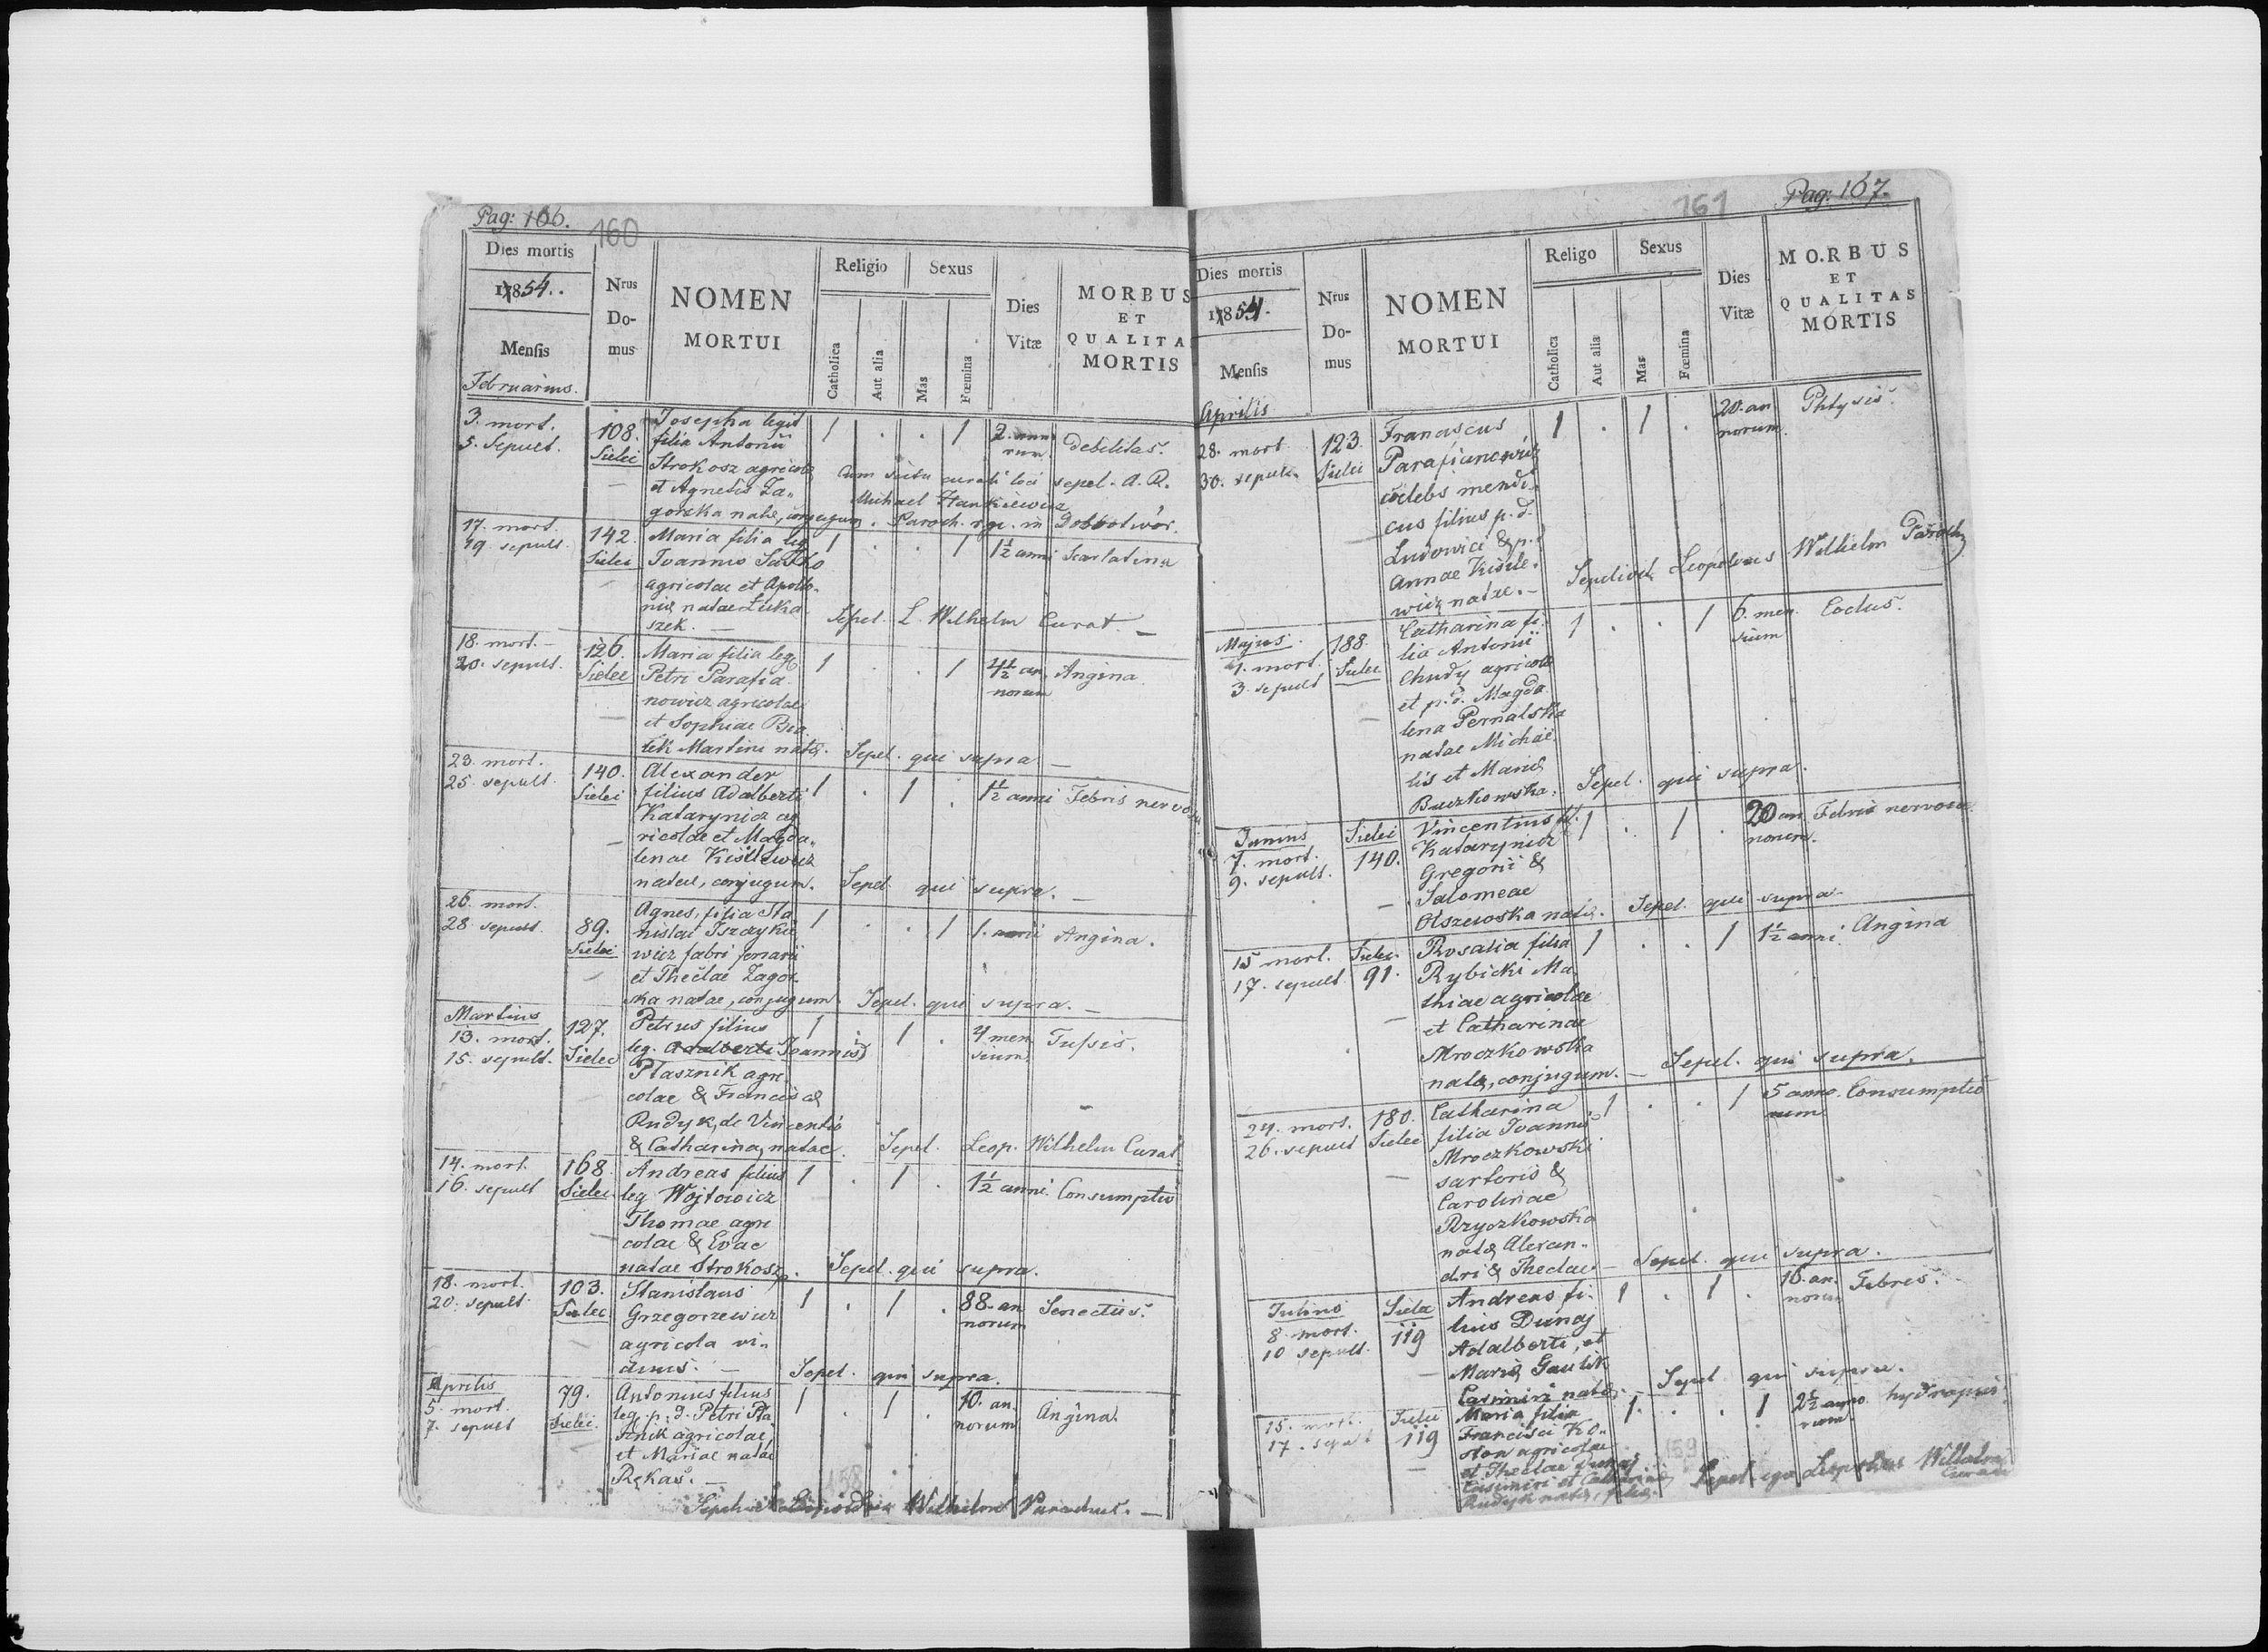 Pag: 166.
160
Dies mortis
1854.
Mensis
Februarius.
Nrus
Do-
mus
NOMEN
MORTUI
Religio
Catholica
Aut alia
Sexus
Mas
Fœmina
Dies
Vitæ
MORBUS
ET
QUALITA
MORTIS
3. mort.
5. Sepult.
108.
Sielec
Josepha legit
filia Antonii
Strokosz agricolæ
et Agnetis Za„
gorska natæ, conjugum.
1 . . 1
2. anno
rum
Debilitas.
Cum scitu curati loci sepel. A. R.
Michael Stankiewicz
Paroch. r. gr. in Dobrotwór.
17. mort.
19. sepult.
142.
Sielec
Maria filia leg
Joannis Saszko
agricolae et Apollo-
niæ natae Łuka
szek. —
1 . . 1
1½ anni
Scarlatina
Sepel. L. Wilhelm Curat. —
18. mort. -
20. sepult.
126.
Sielec
Maria filia leg.
Petri Parafia
nowicz agricolae
et Sophiae Bia
lek Martini natæ.
1 . . 1
4½ an
norum
Angina.
Sepel. qui supra —
23. mort.
25. sepult.
140.
Sielec
Alexander
filius Adalberti
Katarynicz ag
ricolae et Magda„
lenae Kisilewicz
natae, conjugum.
1 . 1 .
1½ anni
Febris nervosa
Sepel. qui supra. —
26. mort.
28. sepult
89.
Sielec
Agnes, filia Sta
nislai Iszczyku
wicz fabri ferrarii
et Theclae Zagor
ska natae, conjugum.
1 . . 1
1. anni
Angina.
Sepel. qui supra. —
Martius
13. mort.
15. sepult.
127.
Sielec
Petrus filius
leg. Adalberti Joannis
Ptasznik agri
colae & Franciscæ
Rudyk, de Vincentio
& Catharina, natae.
1 . 1 .
4 men
sium
Tussis.
Sepel. Leop. Wilhelm Curat
14. mort.
16. sepult
168.
Sielec
Andreas filius
leg Wojtowicz
Thomae agri
colae & Evae
natae Strokosz.
1 . 1 .
1½ anni.
Consumptio
Sepel. qui supra.
18. mort.
20. sepult
103.
Sielec
Stanislaus
Grzegorzewicz
agricola vi„
duus. —
1 . 1 .
88. an
norum
Senectus.
Sepel. qui supra.
Aprilis
5. mort.
7. sepult
79.
Sielec.
Antonius filius
leg. p. d. Petri Pta
sznik agricolae,
et Mariae natae
Rękas. —
1 . 1 .
10. an
norum
Angina.
158
Sepelivit Leopoldus Wilhelm Parochus. —
Pag: 167.
161
Dies mortis
1854.
Mensis
Aprilis
Nrus
Do-
mus
NOMEN
MORTUI
Religo
Catholica
Aut alia
Sexus
Mas
Fœmina
Dies
Vitæ
MORBUS
ET
QUALITAS
MORTIS
28. mort
30. sepult.
123.
Sielec
Franciscus
Parafianowicz
cœlebs mendi„
cus filius p. d.
Ludovici & p. d.
Annae Kisile„
wicz natae. —
1 . 1 .
20. an
norum
Phtysis.
Sepelivit Leopoldus Wilhelm Paroch
Majus.
1. mort.
3. sepult
188.
Sielec
Catharina fi„
lia Antonii
Chudy agricolæ
et p. d. Magda
lena Pernalska
natae Michaë
lis et Mariæ
Buczkowska.
1 . . 1
6. men
sium
Coctus.
Sepel. qui supra.
Junius
7. mort.
9. sepult.
Sielec
140.
Vincentius fil.
Katarynicz
Gregorii &
Salomeae
Olszewska natæ.
1 . 1 .
20 an
norum.
Febris nervosa.
Sepel. qui supra
15 mort.
17. sepult
Sielec.
91.
Rosalia filia
Rybicki Ma
thiae agricolae
et Catharinae
Mroczkowska
natæ, conjugum. —
1 . . 1
1½ anni.
Angina
Sepel. qui supra.
24. mort.
26. sepult
180.
Sielec
Catharina
filia Joannis
Mroczkowski
sartoris &
Carolinae
Rzyczkowska
natæ Alexan„
dri & Theclae. —
1 . . 1
5 anno
rum
Consumptio
Sepel. qui supra.
Julius
8. mort.
10 sepult.
Sielec
119
Andreas fi„
lius Dunaj
Adalberti, et
Mariæ Gaulik
Casimiri natæ.
1 . 1 .
16. an
norum
Febris.
Sepel qui supra.
15. mort.
17. sepult
Sielec
119
Maria filia
Francisci Ko„
ston agricolae
et Theclae Dunaj
Casimiri et Catharinæ
Rudyk natæ, filia.
1 . . 1
2½ anno
rum
hydropsis.
159
Sepel. ego Leopoldus Wilhelm
Curat